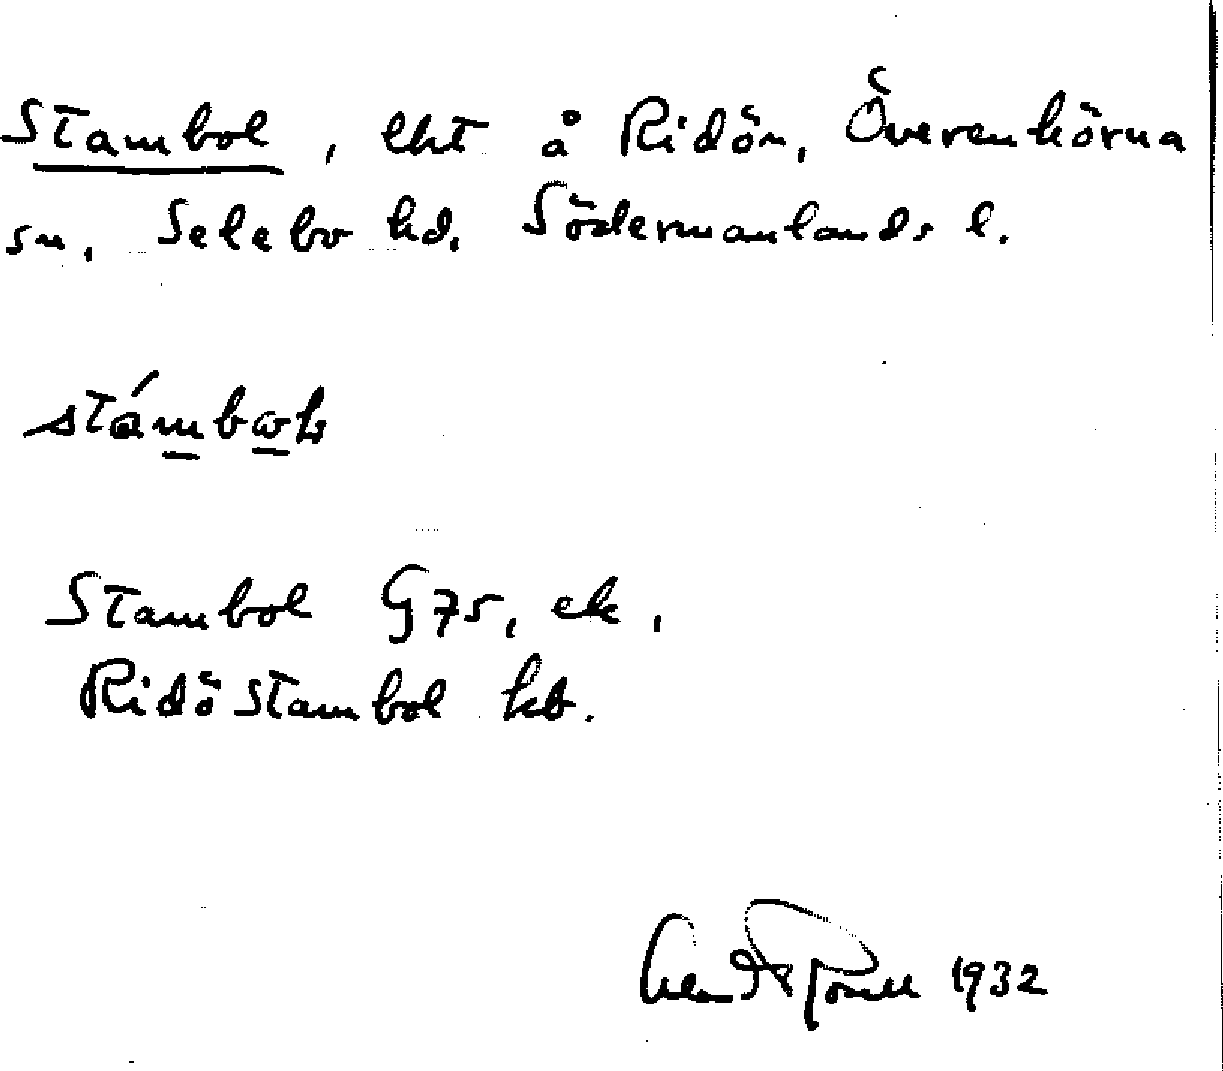 Stambol, lht å Ridön, Överenhörna
sn, Selebo hd. Södermanlands l.
stámbωl
Stambol G75, ek,
Ridö Stambol kb.
1932